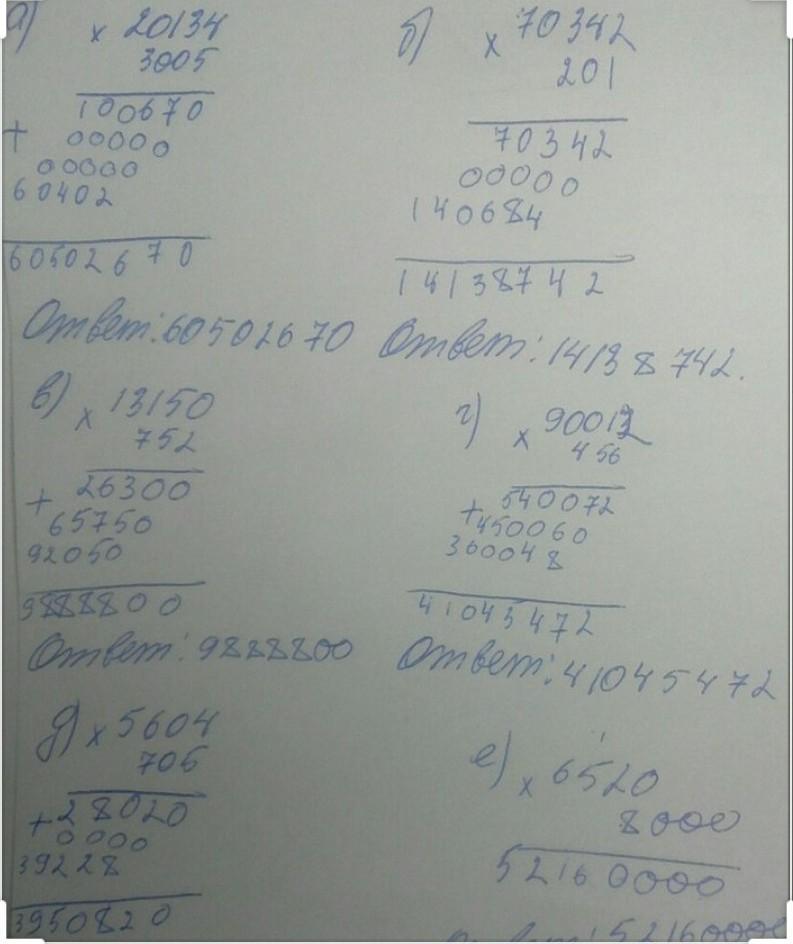 а) × 20134
3005
100670
+ 00000
00000
60402
60502670
Ответ: 60502670
б) × 70342
201
70342
00000
140684
14138742
Ответ: 14138742.
в) × 13150
752
+ 26300
65750
92050
9888800
Ответ: 9888800
г) × 90012
456
+ 540072
450060
360048
41045472
Ответ: 41045472
д) × 5604
705
+ 28020
0000
39228
3950820
е) × 6520
8000
52160000
Ответ: 52160000